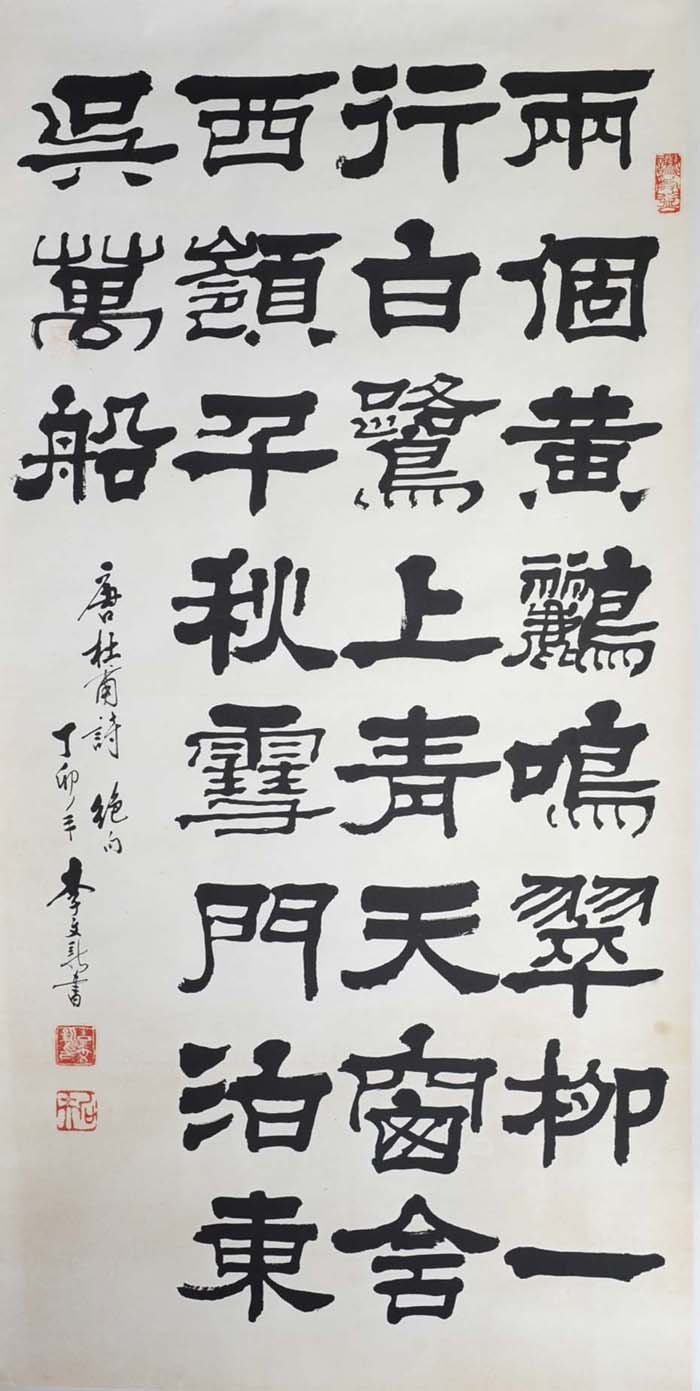 兩個黄鸝鳴翠柳一
行白鷺上青天窗含
西嶺千秋雪門泊東
吳萬船
唐杜甫詩 絶句
丁卯年 李文書